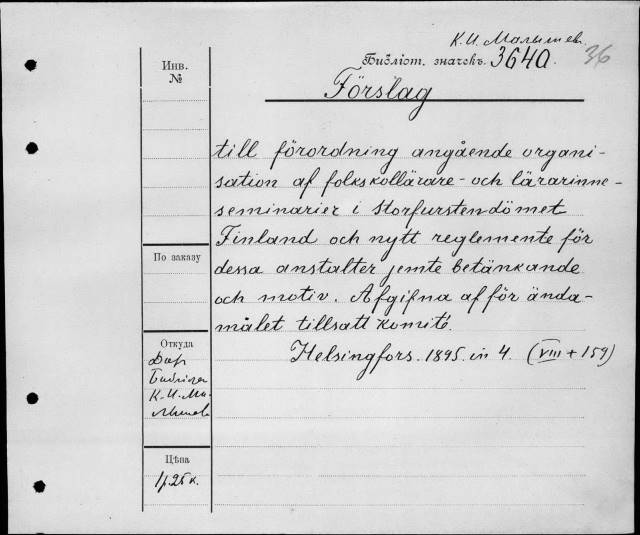 К. И. Малышев.
Библіот. значекъ. 364а.
36
Инв.
№
Förslag
till förordning angående organi-
sation af folkskollärare- och lärarinne-
seminarier i Storfurstendömet
Finland och nytt reglemente för
dessa anstalter jemte betänkande
och motiv. Afgifna af för ända-
målet tillsatt komité.
Helsingfors. 1895. in 4. (VIII + 159)
По заказу
Откуда
Дар
К. И. Ма-
лышева
Цѣна
1р.25 к.